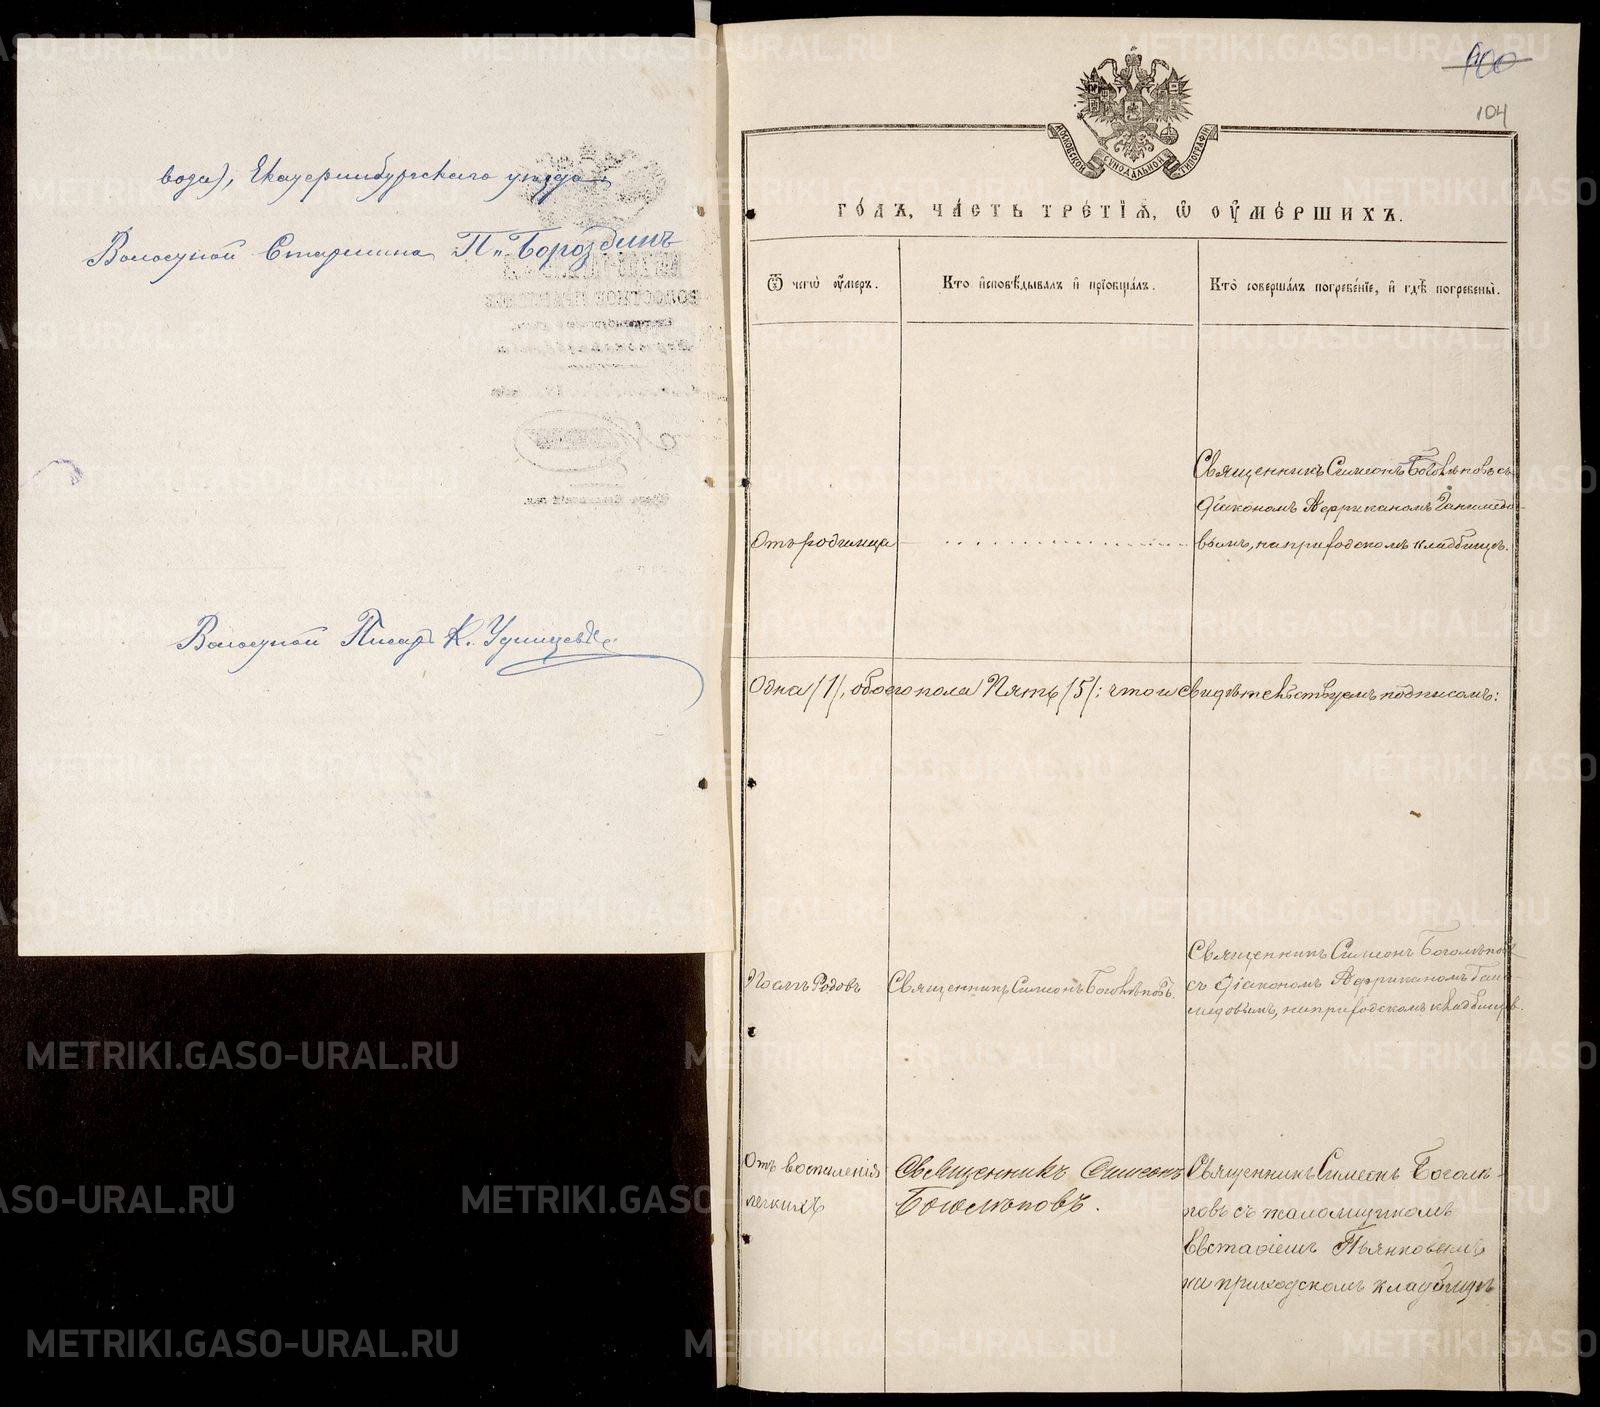 вода), Екатеринбургскаго уѣзда.
Волостной Старшина П. Бороздинъ
Волостной Писарь К.
100
104
МОСКОВСКОЙ СѴНОДАЛЬНОЙ ТИПОГРАФІИ
го́дъ, ча́сть тре́тїѧ, ѡ҆ ᲂу҆ме́ршихъ.
Ѿ чегѡ̀ ᲂу҆́меръ.
Кто̀ и҆сповѣ́дывалъ и҆ прїѡбща́лъ.
Кто̀ соверша́лъ погребе́нїе, и҆ гдѣ̀ погребены̀.
Священникъ Симеонъ Боголѣповъ съ
Діакономъ Аффриканомъ Ганимедо-
Отъ родимца
вымъ, на приходскомъ кладбищѣ.
Одна /1/, обоего пола Пять /5/: что и свидѣтельствуемъ подписомъ:
Священникъ Симеонъ Боголѣповъ
Послѣ Родовъ
Священникъ Симеонъ Боголѣповъ.
съ Діакономъ Аффриканомъ Гани-
медовымъ, на приходскомъ кладбищѣ.
Отъ воспаленія
легкихъ
Священникъ Симеонъ
Боголѣповъ.
Священникъ Симеонъ Боголѣ-
повъ съ псаломщикомъ
Евстафіемъ Пьянковымъ
на приходскомъ кладбищѣ
METRIKI.GASO-URAL.RU